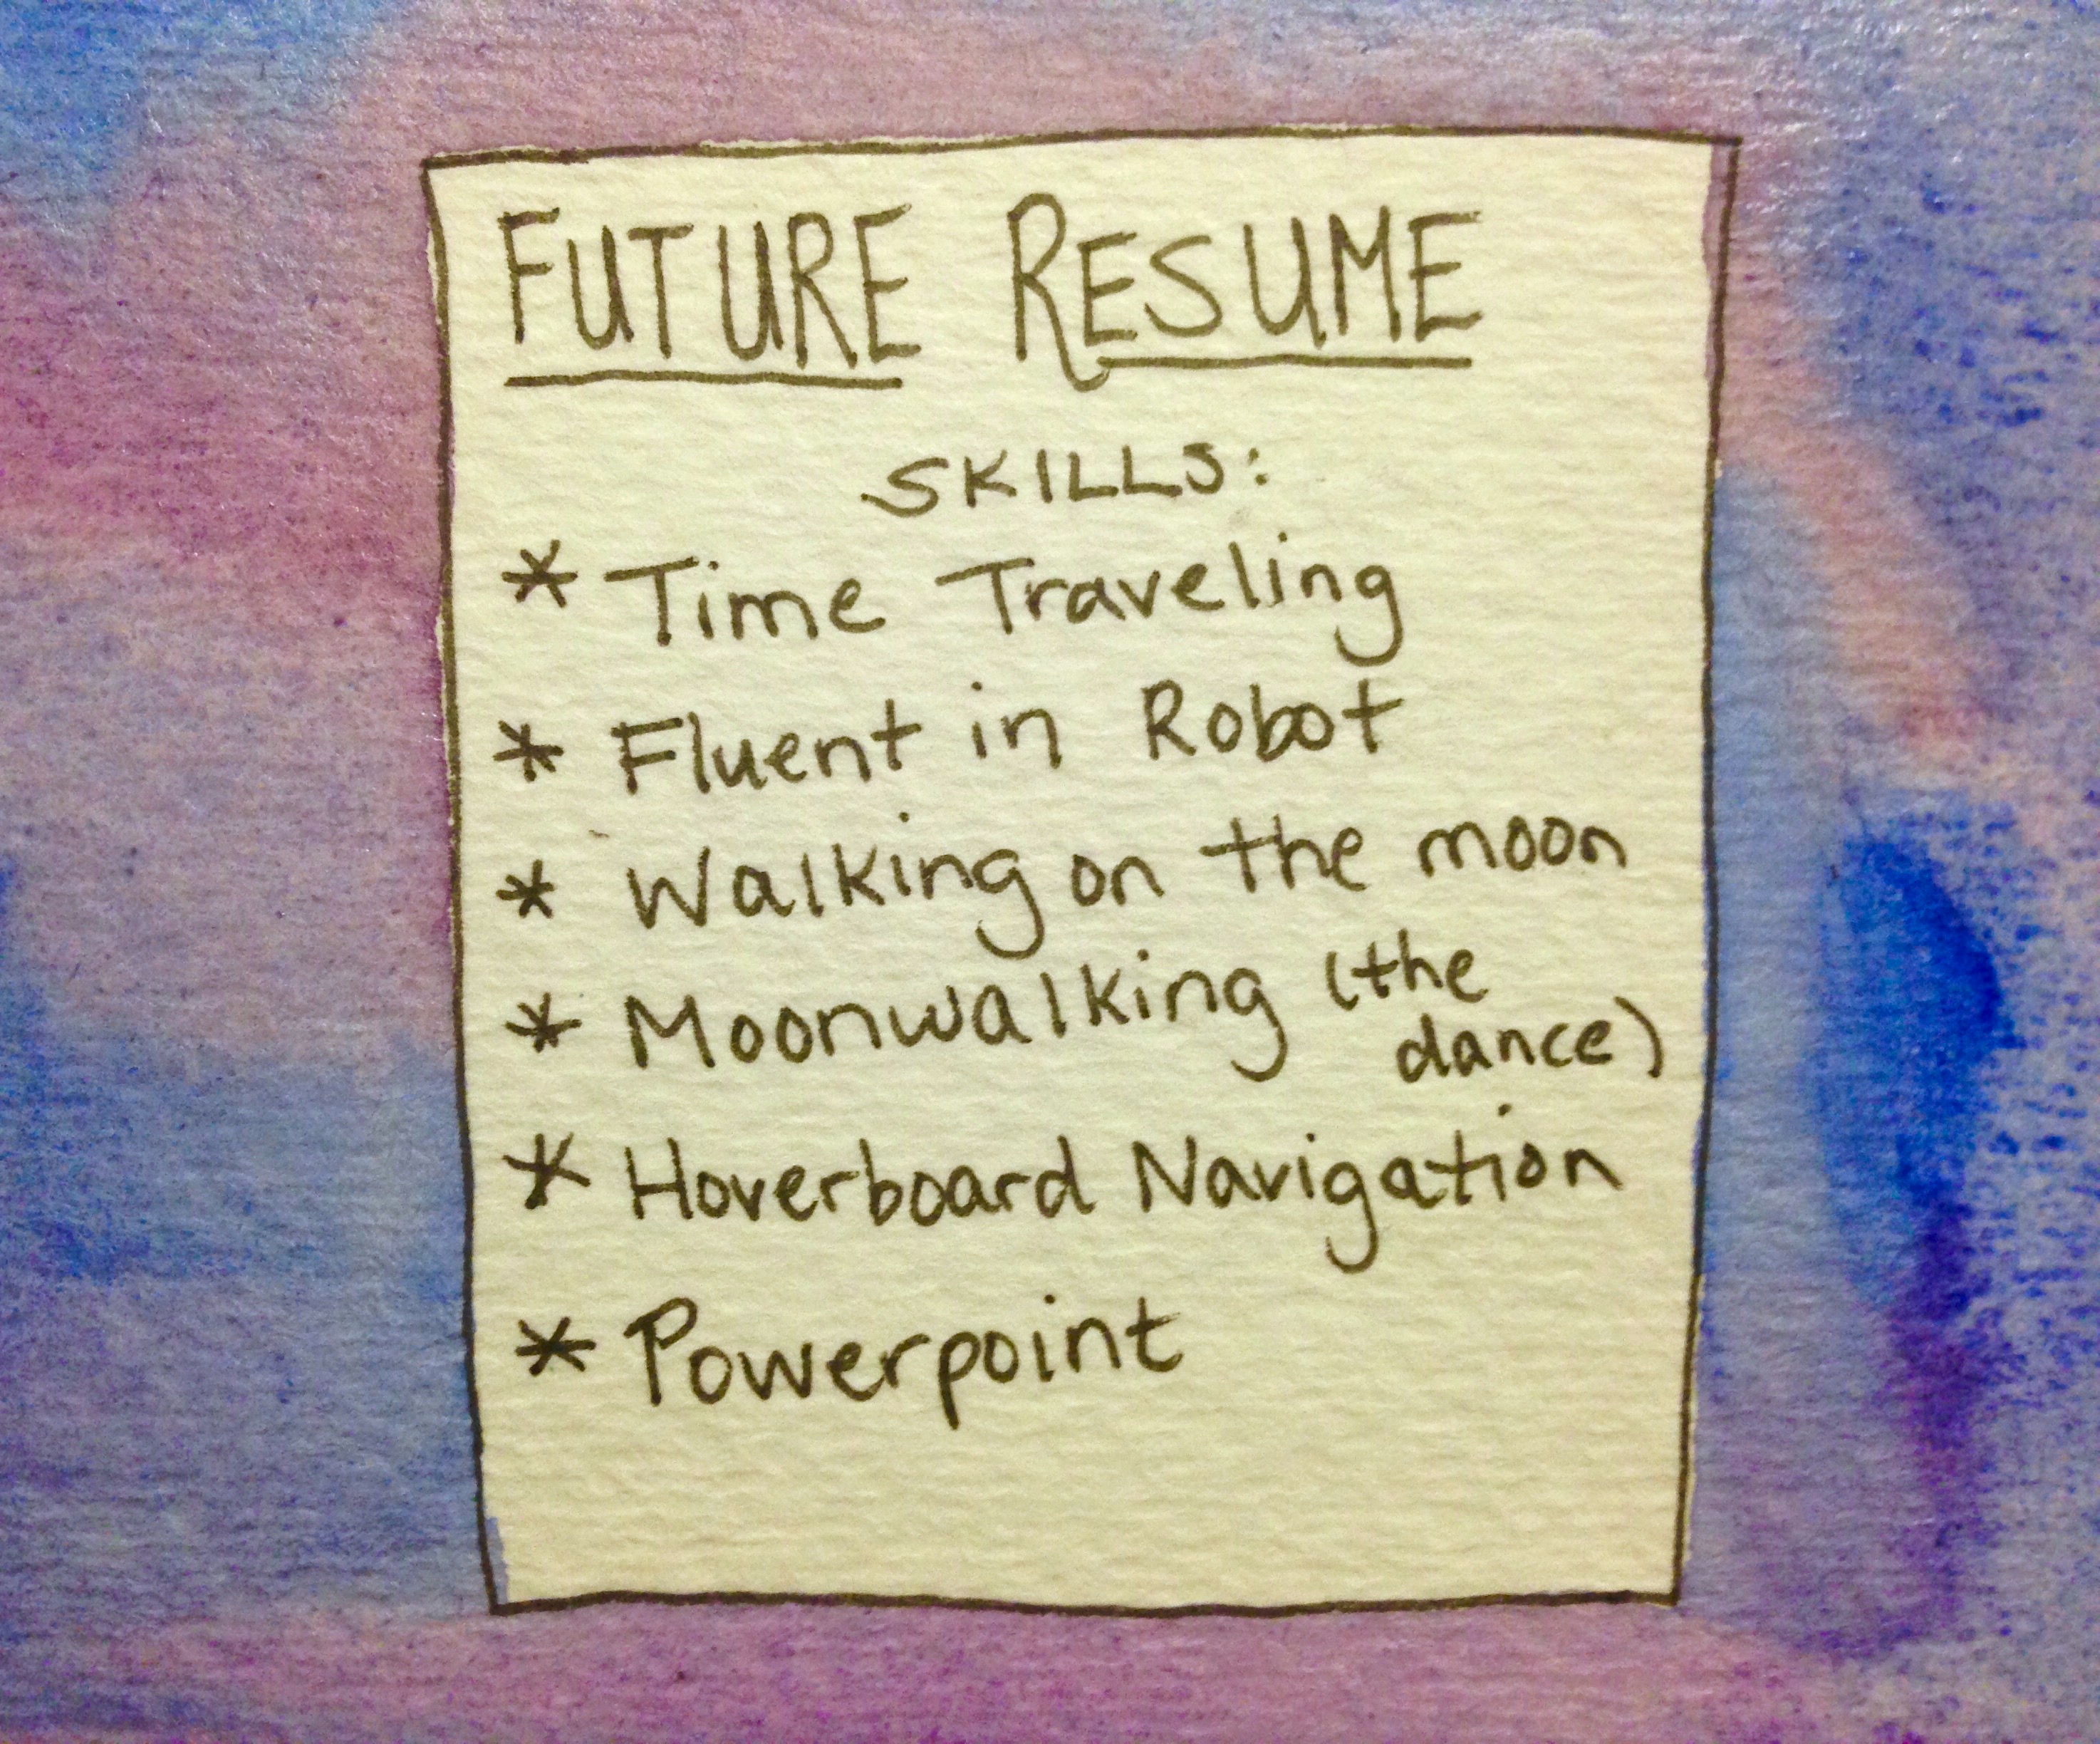 FUTURE RESUME
SKILLS:
* Time Traveling
* Fluent in Robot
* Walking on the moon
* Moonwalking (the
dance)
* Hoverboard Navigation
* Powerpoint